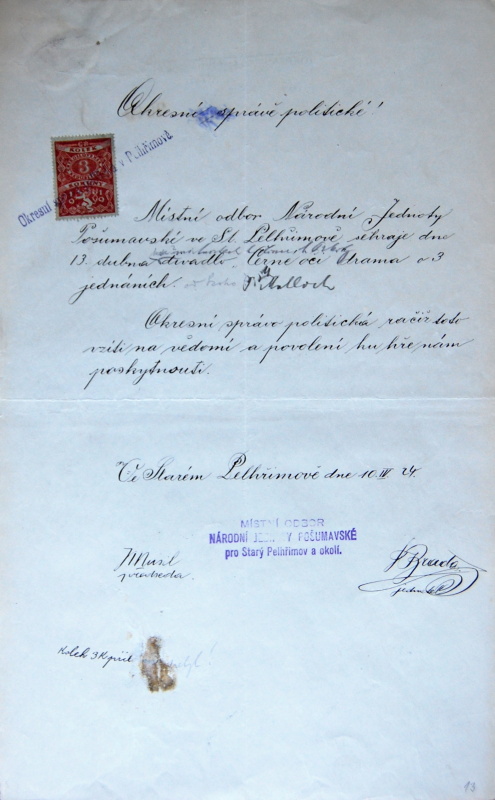 Okresní správě politické!
KOLEK
3
KORUNY
Okresní v Pelhřimově
Místní odbor Národní Jednoty
Pošumavské ve St. Pelhřimově sehraje dne
13. dubna divadlo Černé oči Drama o 3
jednáních.
Okresní správo politická račiž toto
vzíti na vědomí a povolení ku hře nám
poskytnouti.
Ve Starém Pelhřimově dne 10. IV 24.
MÍSTNÍ ODBOR
NÁRODNÍ JEDNOTY POŠUMAVSKÉ
pro Starý Pelhřimov a okolí.
předseda.
jednatel
Kolek 3 K
93